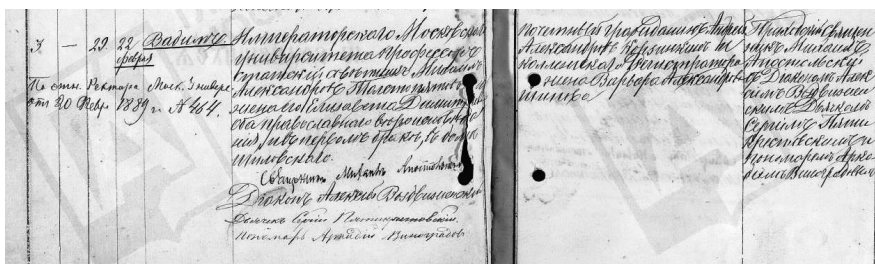 3. — 29. 22 Вадимъ
февраля
По отн. Ректора Моск. Универс.
отъ 20 Февр 1889 г. № 464.
Императорскаго Московскаго
университета профессоръ
статскій совѣтникъ Михаилъ
Александровъ и законная
жена его Елисавета Димитріева
оба православнаго вѣроисповѣда-
нія, и въ первомъ бракѣ, въ домѣ
Священникъ Михаилъ Апостольскій
Діаконъ Алексій Воздвиженскій
Дьячекъ Сергій
Пономарь Аркадій Виноградовъ
почетный гражданинъ Андрей
Александровъ Корзинкинъ и
регистратора
жена Варвара Александрова
Приходскій священ-
никъ Михаилъ
Апостольскій
съ Діакономъ Алексѣ-
емъ Воздвижен-
скимъ Дьячкомъ
Сергіемъ
и
пономаремъ Арка-
діемъ Виноградовымъ